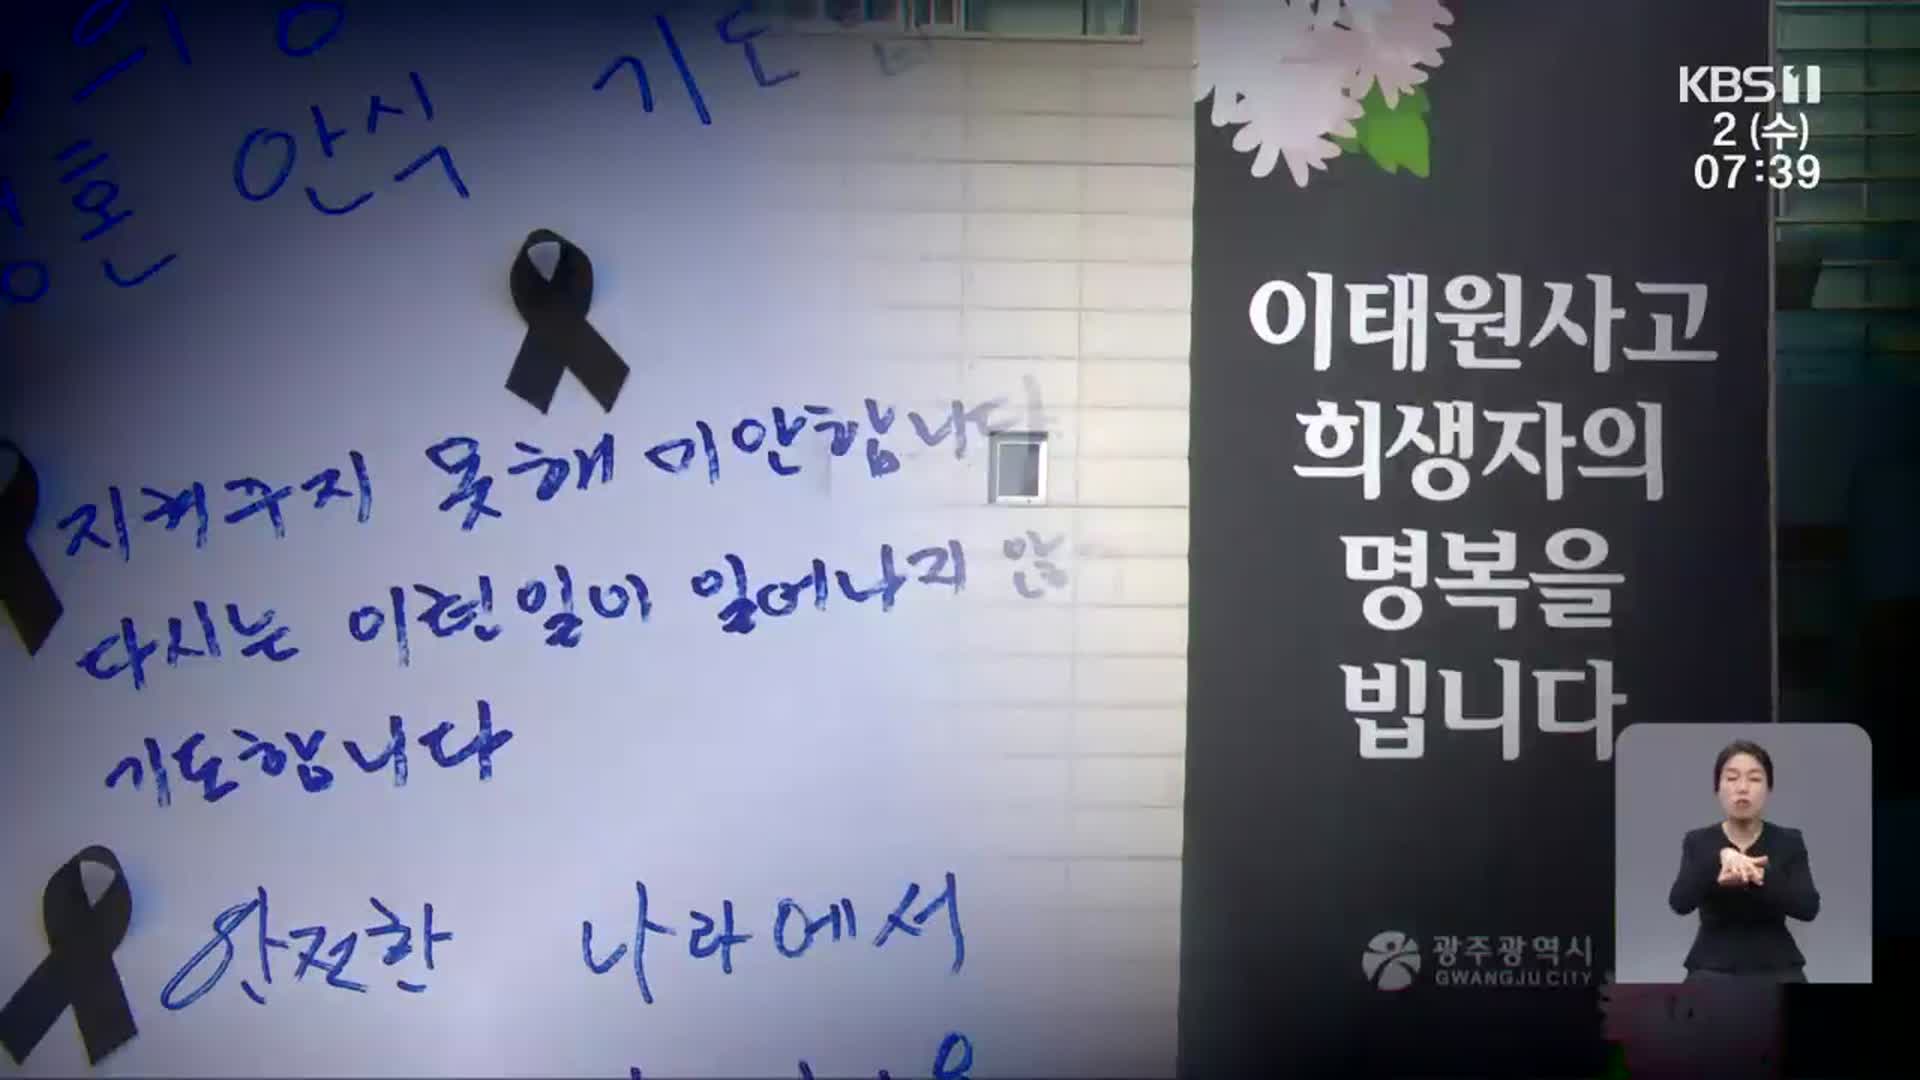 안식 기도
지켜주지 못해 미안합니다
다시는 이런일이 일어나지 않
기도합니다
안전한 나라에서
이태원사고
희생자의
명복을
빕니다
광주광역시
GWANGJU CITY
KBS 1
2 (수)
07:39